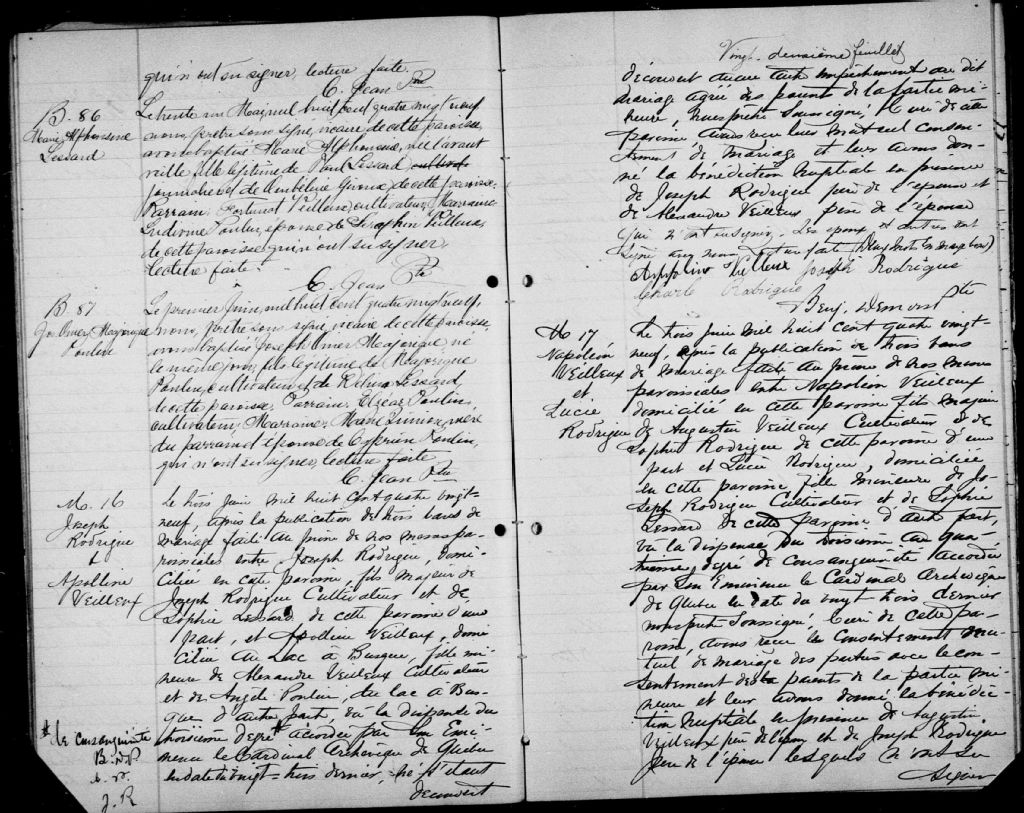 qui n'ont su signer, lecture faite.
C. Jean Ptre
B. 86
Marie Alphonsine
Lessard
Le trente un Mai, mil huit cent quatre vingt neuf,
nous, prêtre sous signé, vicaire de cette paroisse,
avons baptisé Marie Alphonsine, née l'avant
veille, fille légitime de Paul Lessard
journalier et de Giroux, de cette paroisse.
Parrain, Fortunat Veilleux, cultivateur, Marraine,
Poulin, épouse de Séraphin Veilleux,
de cette paroisse qui n'ont su signer,
lecture faite.
C. Jean Ptre
B. 87
Jos Omer Majorique
Poulin
Le premier Juin, mil huit cent quatre vingt neuf,
nous, prêtre sous signé, vicaire de cette paroisse,
avons baptisé Joseph Omer Majorique né
le même jour, fils légitime de Majorique
Poulin, cultivateur et de Lessard
de cette paroisse. Parrain, Elzéar Poulin,
cultivateur, Marraine, Marie, mère
du parrain et épouse de Cyprien Poulin,
qui n'ont su signer, lecture faite
C. Jean Ptre
M. 16
Joseph
Rodrigue
+
Apolline
Veilleux
Le trois Juin mil huit cent quatre vingt-
neuf, après la publication de trois bans de
mariage faite au prône de nos messes pa-
roissiales entre Joseph Rodrigue, domi-
cilié en cette paroisse, fils majeur de
Joseph Rodrigue Cultivateur et de
Sophie Lessard de cette paroisse d'une
part, et Apolline Veilleux, domi-
ciliée au Lac à Busque, fille mi-
neure de Alexandre Veilleux Cultivateur
et de Angèle Poulin, du lac à Bus-
que, d'autre part, vu la dispense du
troisième degré accordée par Son Emi-
nence le Cardinal Archevêque de Québec
en date du vingt-trois dernier, ne s'étant
découvert
de consanguinité
B. D. P
J. R
Vingt-deuxième feuillet
découvert aucun autre empêchement au dit
mariage agréé des parents de la partie mi-
neure, nous prêtre soussigné, Curé de cette
paroisse, avons reçu leur mutuel consen-
tement de mariage et leur avons don-
né la bénédiction nuptiale en présence
de Joseph Rodrigue père de l'époux et
de Alexandre Veilleux, père de l'épouse
qui n'ont su signer. Les époux et autres ont
signé avec nous lecture faite (Deux mots en marge bons)
Appolino Veilleux Joseph Rodrigue
Charle Rodrigue
Benj. Demers Ptre
M 17
Napoléon
Veilleux
et
Lucie
Rodrigue
Le trois Juin mil huit cent quatre vingt-
neuf, après la publication de trois bans
de mariage faite au prône de nos messes
paroissiales entre Napoléon Veilleux
domicilié en cette paroisse fils majeur
de Augustin Veilleux Cultivateur et de
Sophie Rodrigue de cette paroisse d'une
part et Lucie Rodrigue, domiciliée
en cette paroisse, fille mineure de Jo-
seph Rodrigue Cultivateur et de Sophie
Lessard de cette paroisse d'autre part,
vu la dispense du troisième au qua-
trième degré de consanguinité accordée
par Son Eminence le Cardinal Archevêque
de Québec en date du vingt trois dernier
nous prêtre Soussigné, Curé de cette pa-
roisse, avons reçu le consentement mu-
tuel de mariage des parties avec le con-
sentement des parents de la partie mi-
neure et leur avons donné la bénédic-
tion nuptiale en présence de Augustin
Veilleux père de l'époux et de Joseph Rodrigue
père de l'épouse lesquels n'ont su
signer